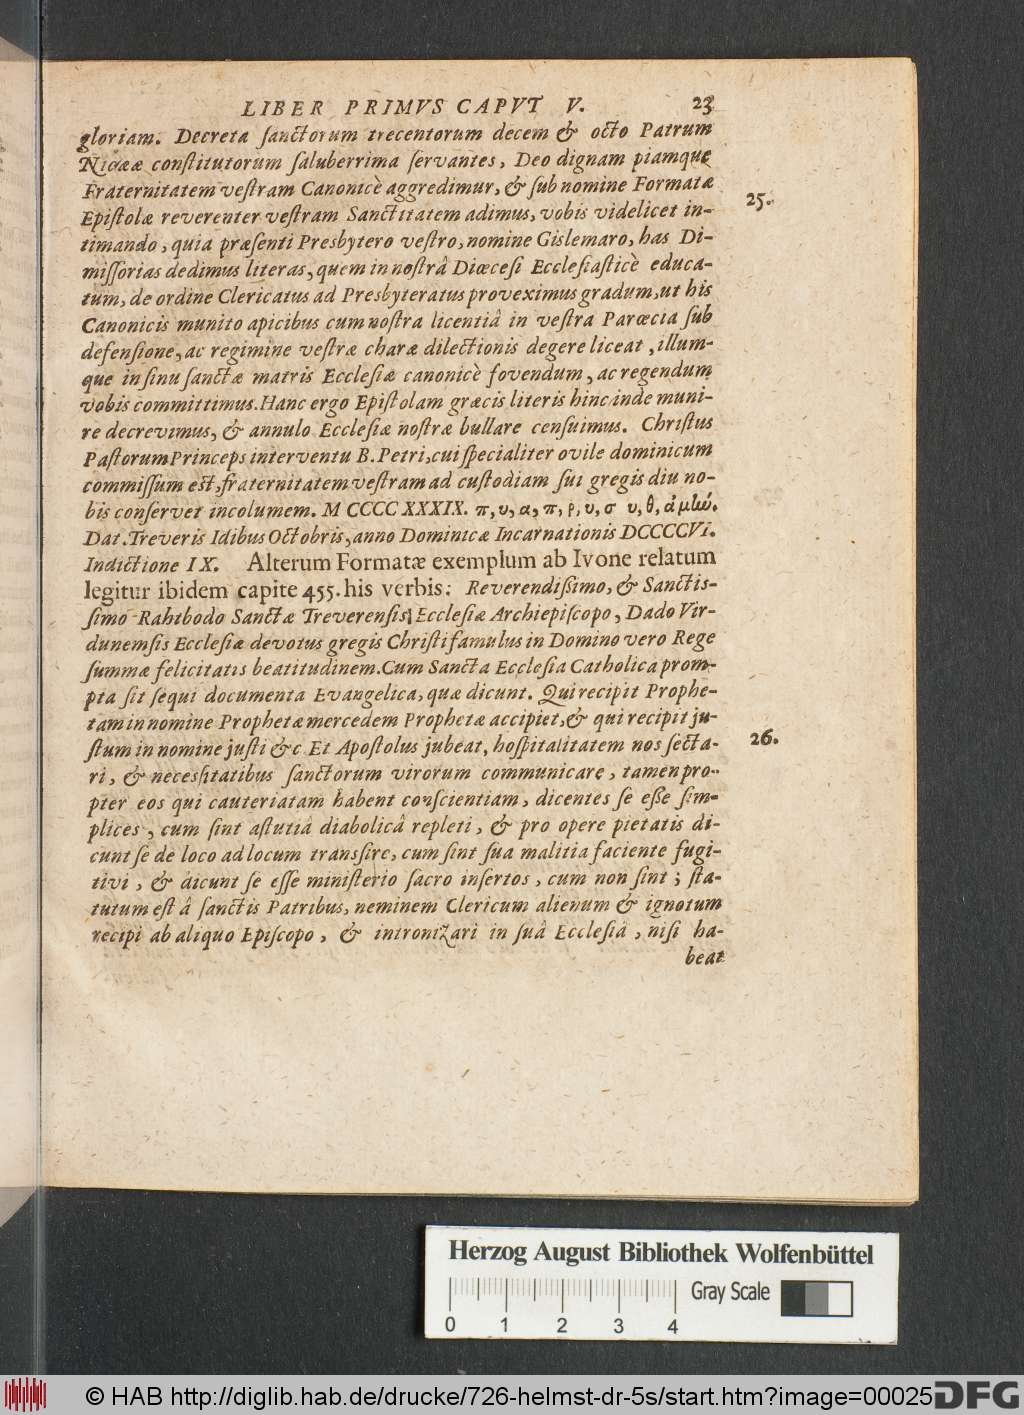 LIBER PRIMVS CAPVT V. 23
gloriam. Decreta ſanctorum trecentorum decem & octo Patrum
Nicææ conſtitutorum ſaluberrima ſervantes, Deo dignam piamque
Fraternitatem veſtram Canonicè aggredimur, & ſub nomine Formatæ
25.
Epiſtolæ reverenter veſtram Sanctitatem adimus, vobis videlicet in-
timando, quia præſenti Presbytero veſtro, nomine Gislemaro, has Di-
miſſorias dedimus literas, quem in noſtrâ Diœceſi Eccleſiaſticè educa-
tum, de ordine Clericatus ad Presbyteratus proveximus gradum, ut his
Canonicis munito apicibus cum noſtra licentiâ in veſtra Parœcia ſub
defenſione, ac regimine veſtræ charæ dilectionis degere liceat, illum-
que in ſinu ſanctæ matris Eccleſiæ canonicè fovendum, ac regendum
vobis committimus. Hanc ergo Epiſtolam græcis literis hinc inde muni-
re decrevimus, & annulo Eccleſiæ noſtræ bullare cenſuimus. Chriſtus
Paſtorum Princeps interventu B. Petri, cui ſpecialiter ovile dominicum
commiſſum eſt, fraternitatem veſtram ad cuſtodiam ſui gregis diu no-
bis conſervet incolumem. M CCCC XXXIX. π, υ, α, π, ρ, υ, σ υ, θ, ἀμὼ.
Dat. Treveris Idibus Octobris, anno Dominicæ Incarnationis DCCCCVI.
Indictione IX. Alterum Formatæ exemplum ab Ivone relatum
legitur ibidem capite 455. his verbis: Reverendiſſimo, & Sanctis-
ſimo Rahtbodo Sanctæ Treverenſis Eccleſiæ Archiepiſcopo, Dado Vir-
dunemſis Eccleſiæ devotus gregis Chriſti famulus in Domino vero Rege
ſummæ felicitatis beatitudinem. Cum Sancta Eccleſia Catholica prom-
pta ſit ſequi documenta Evangelica, quæ dicunt. Qui recipit Prophe-
tam in nomine Prophetæ mercedem Prophetæ accipiet, & qui recipit ju-
ſtum in nomine juſti &c. Et Apoſtolus jubeat, hoſpitalitatem nos ſecta-
26.
ri, & neceſſitatibus ſanctorum virorum communicare, tamen pro-
pter eos qui cauteriatam habent conſcientiam, dicentes ſe eſſe ſim-
plices, cum ſint aſtutiâ diabolicâ repleti, & pro opere pietatis di-
cunt ſe de loco ad locum tranſire, cum ſint ſua malitia faciente fugi-
tivi, & dicunt ſe eſſe miniſterio ſacro inſertos, cum non ſint; ſta-
tutum eſt â ſanctis Patribus, neminem Clericum alienum & ignotum
recipi ab aliquo Epiſcopo, & intronizari in ſuâ Eccleſiâ, niſi ha-
beat
Herzog August Bibliothek Wolfenbüttel
Gray Scale
0 1 2 3 4
© HAB http://diglib.hab.de/drucke/726-helmst-dr-5s/start.htm?image=00025
DFG